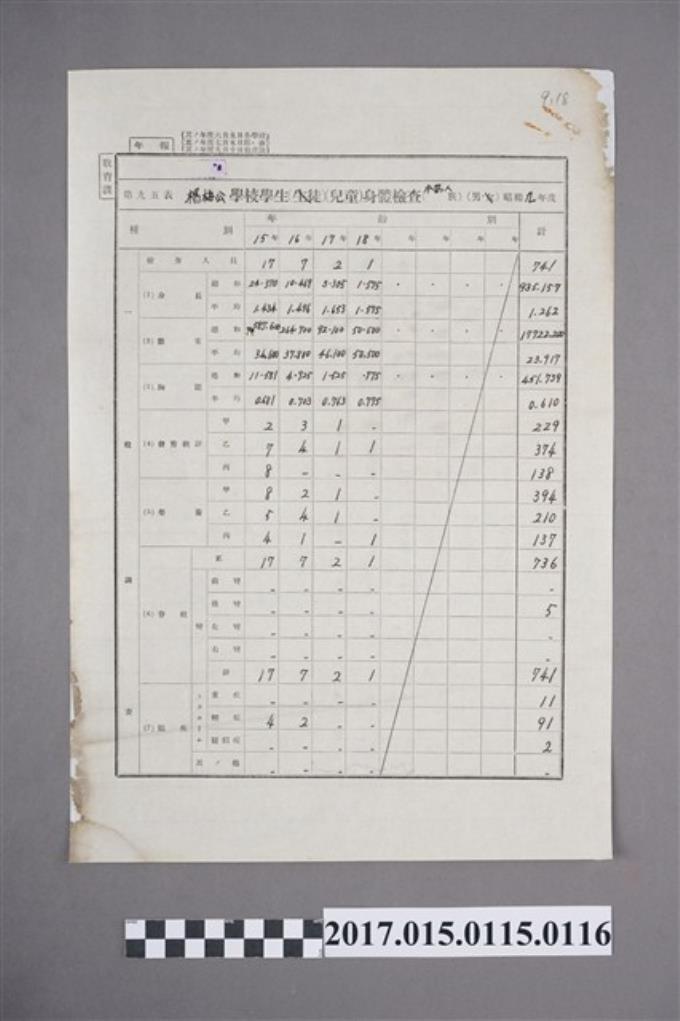 9.18
年報
教育課
第九五表 楊梅公學校學生(生徒)(兒童)身體檢查(本島人族)(男・女)昭和 年度
種別 年齡別 計
15年 16年 17年 18年 年 年 年 年
檢查人員 17 7 2 1 741
(1)身長 總和 24.370 10.469 3.305 1.575 . . . . 935.157
平均 1.434 1.496 1.653 1.575 1.262
(2)體重 總和 587.600 264.700 92.100 50.500 . . . . 17722.200
平均 34.600 37.800 46.100 50.500 23.917
(3)胸圍 總和 11.581 4.925 1.525 .775 . . . . 451.739
平均 0.681 0.703 0.763 0.775 0.610
甲 2 3 1 - 229
(4)發育概評 乙 7 4 1 1 374
丙 8 - - - 138
甲 8 2 1 - 394
(5)榮養 乙 5 4 1 - 210
丙 4 1 - 1 137
正 17 7 2 1 736
前彎 - - - - -
後彎 - - - - 5
(6)脊柱 彎 左彎 - - - - -
右彎 - - - - -
計 17 7 2 1 741
重症 - - - - 11
(7)眼疾 トラホーム 輕症 4 2 - - 91
疑似症 - - - - 2
其ノ他 - - - - -
一般調查
2017.015.0115.0116